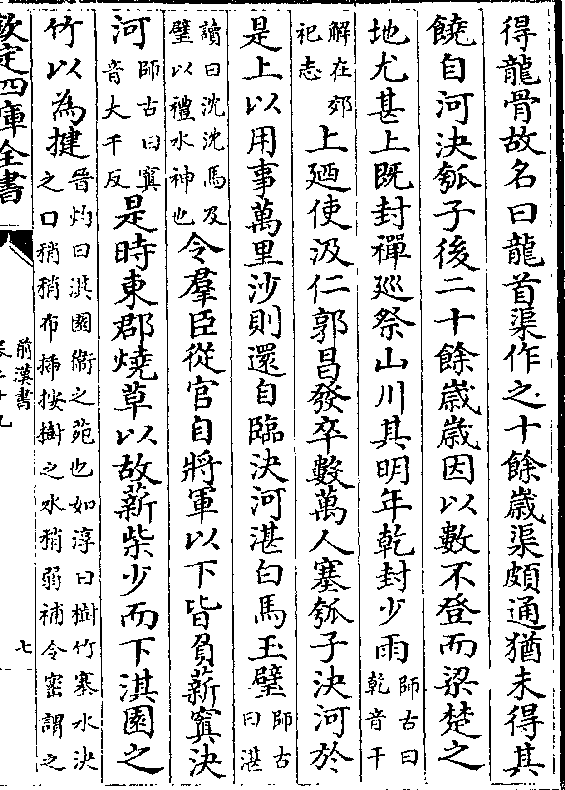 得龍骨故名曰龍首渠作之十餘歲渠頗通猶未得其
饒自河決瓠子後二十餘歲歲因以數不登而梁楚之
地尤甚上既封禪巡祭山川其明年乾封少雨師古曰乾音干
解在郊祀志上廼使汲仁郭昌發卒數萬人塞瓠子決河於
是上以用事萬里沙則還自臨決河湛白馬玉璧師古曰湛
讀曰沈沈馬及璧以禮水神也令羣臣從官自將軍以下皆負薪窴決
河師古曰窴音大千反是時東郡燒草以故薪柴少而下淇園之
竹以為揵晉灼曰淇園衞之苑也如淳曰樹竹塞水決之口稍稍布揷按樹之水稍弱補令密謂之
欽定四庫全書
前漢書
七